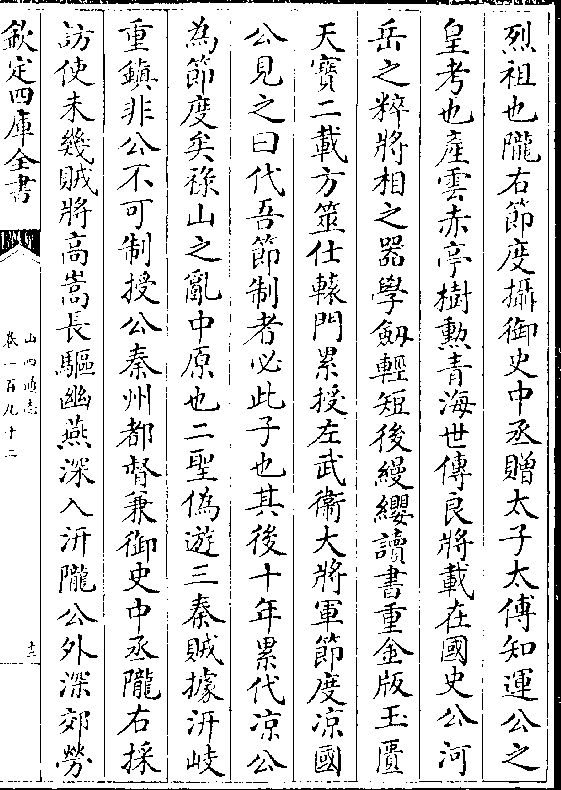 烈祖也隴右節度攝御史中丞贈太子太傅知運公之
皇考也産雲赤亭樹勲青海世傳良將載在國史公河
岳之粹將相之器學劒輕短後縵纓讀書重金版玉匱
天寳二載方筮仕轅門累授左武衛大將軍節度凉國
公見之曰代吾節制者必此子也其後十年累代凉公
為節度矣祿山之亂中原也二聖偽遊三秦賊據汧岐
重鎮非公不可制授公秦州都督兼御史中丞隴右採
訪使未幾賊將高嵩長驅幽燕深入汧隴公外深郊勞
欽定四庫全書
山西通志
卷一百九十二
十三